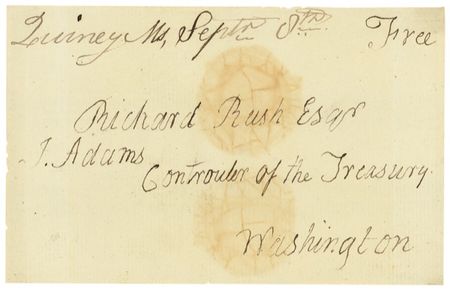 Quincy Ms, Septr 8th Free
Richard Rush Esqr
J. Adams
Controuler of the Treasury.
Washington